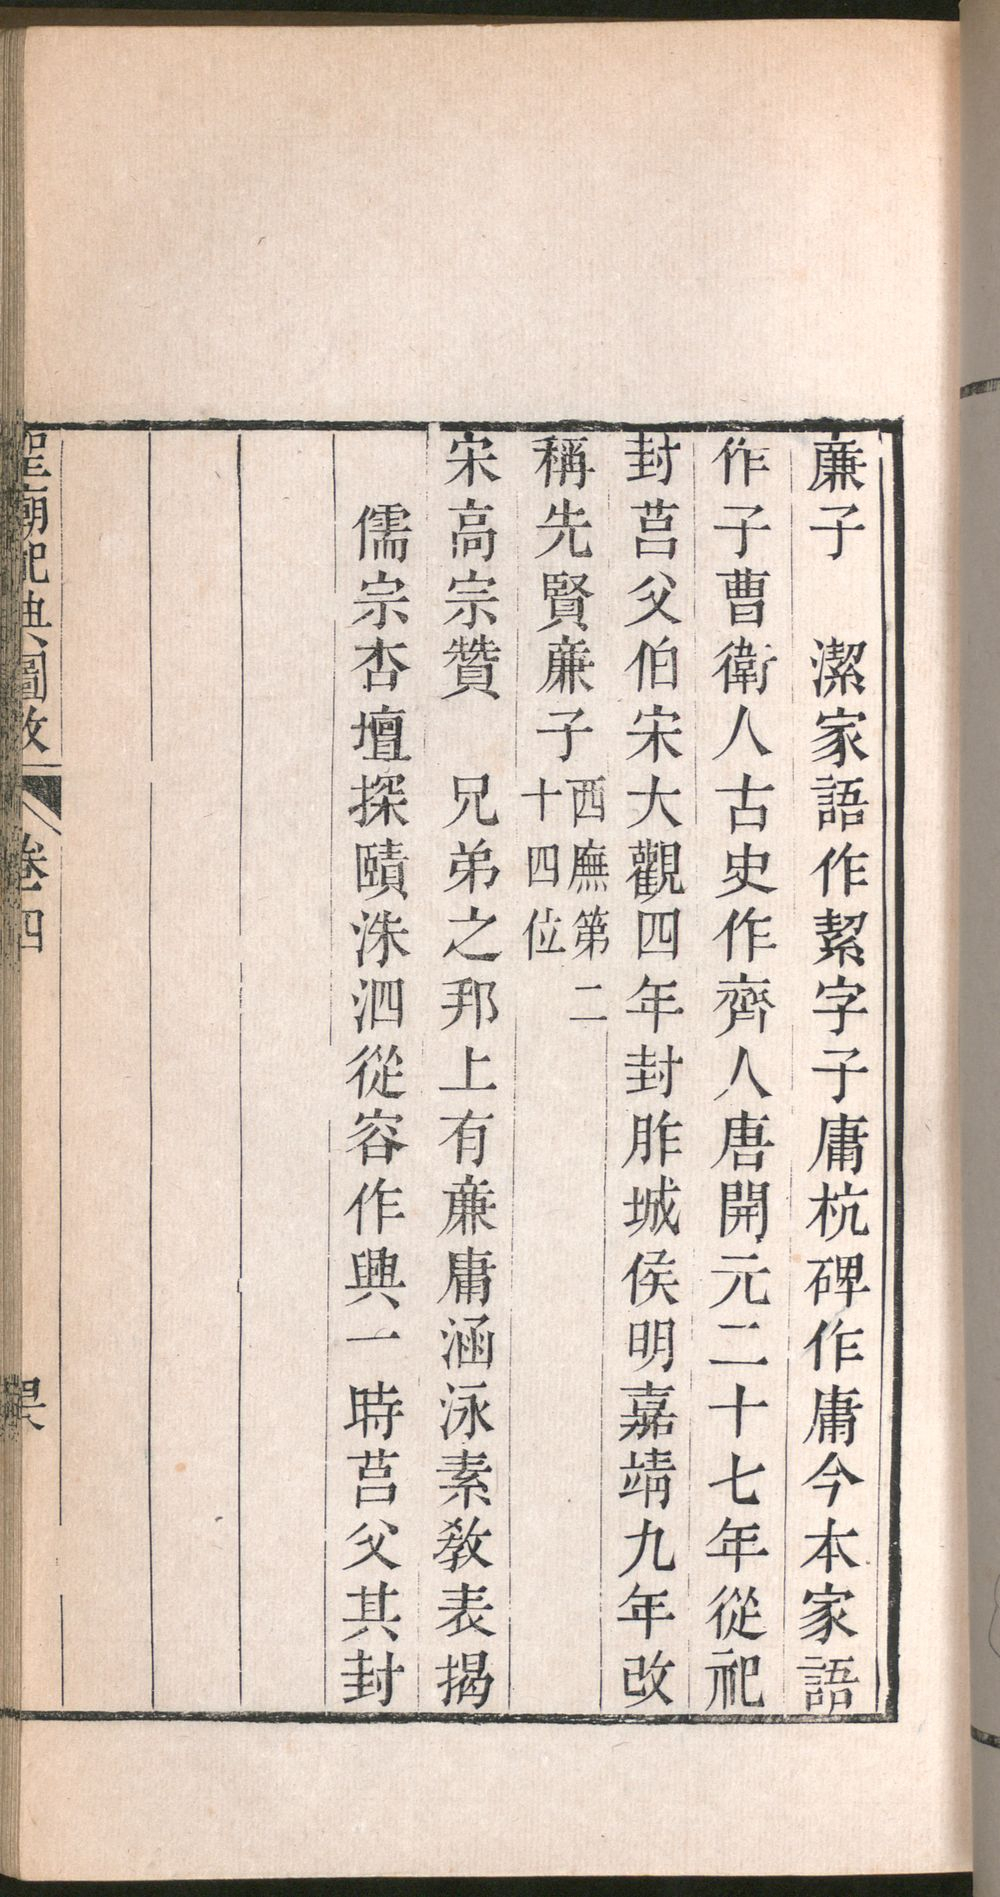 廉子　潔家語作絜字子庸杭碑作庸今本家語
作子曹衛人古史作齊人唐開元二十七年從祀
封莒父伯宋大觀四年封胙城侯明嘉靖九年改
稱先賢廉子
西廡第二
十四位
宋高宗贊　兄弟之邦上有廉庸涵泳素教表揭
儒宗杏壇探賾洙泗從容作興一時莒父其封
聖廟祀典圖攷
卷四